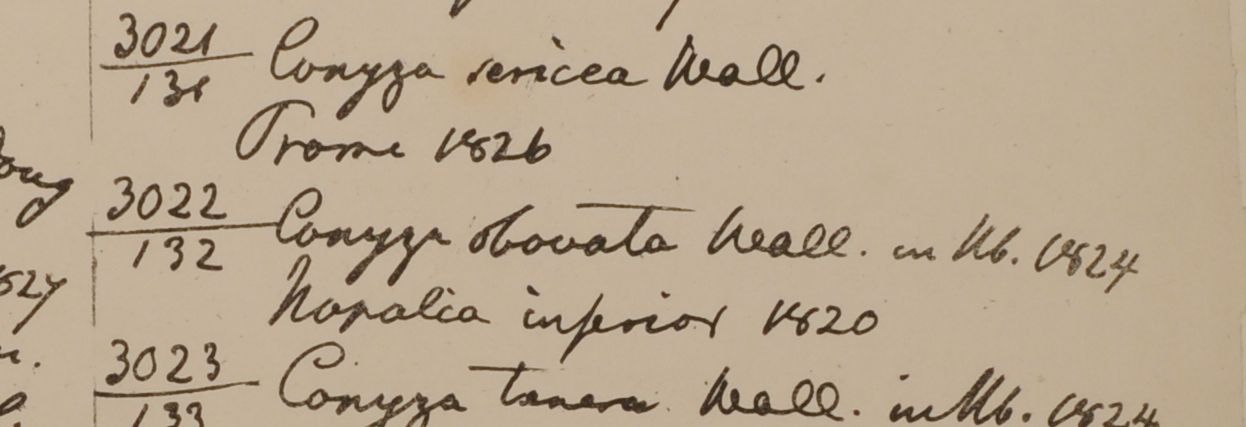 3021
131 Conyza sericea Wall.
Prome 1826
3022
132 Conyza obovata Wall. in Hb. 1824
Napalia inferior 1820
3023
133 Conyza Wall. in Hb. 1824